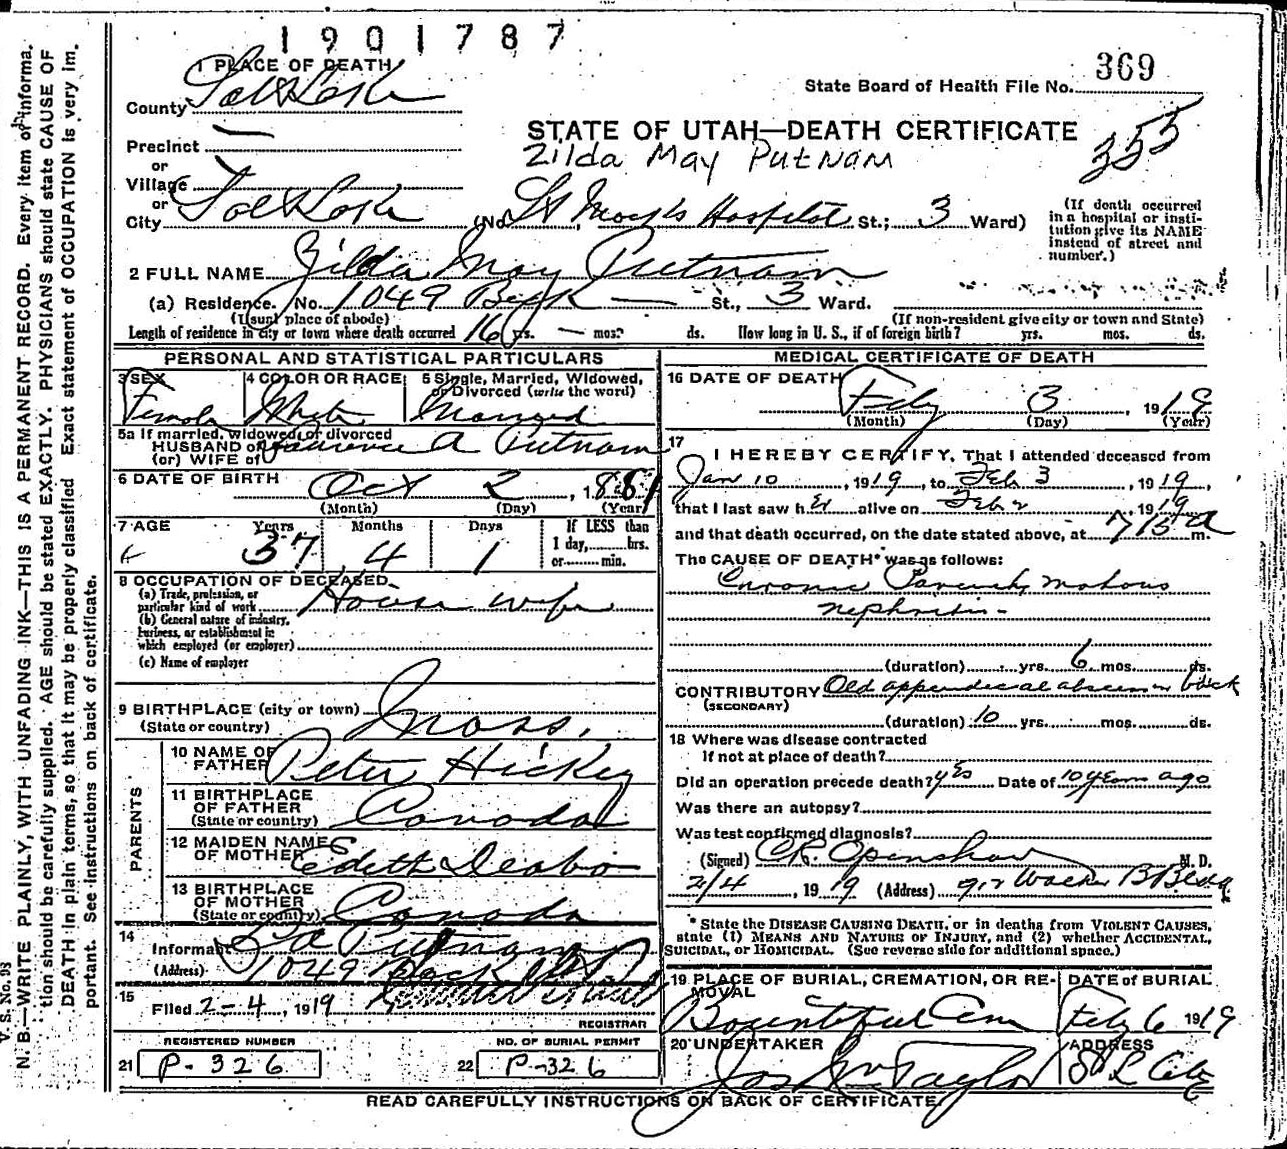 1901787
1 PLACE OF DEATH
369
State Board of Health File No.
County Salt Lake
STATE OF UTAH—DEATH CERTIFICATE
355
Precinct —
Zilda May Putnam
or
Village
or
City Salt Lake (No. St Marks Hospital St.; 3 Ward)
(If death occurred in a hospital or insti-
tution give its NAME instead of street and number.)
2 FULL NAME Zilda May Putnam
(a) Residence. No. 1049 St., 3 Ward.
(Usual place of abode) (If non-resident give city or town and State)
Length of residence in city or town where death occurred 16 yrs. — mos. ds. How long in U. S., if of foreign birth? yrs. mos. ds.
PERSONAL AND STATISTICAL PARTICULARS
3 SEX Female
4 COLOR OR RACE White
5 Single, Married, Widowed, or Divorced (write the word) Married
5a If married, widowed, or divorced
HUSBAND of
(or) WIFE of A Putnam
6 DATE OF BIRTH Oct 2, 1881
(Month) (Day) (Year)
7 AGE Years 37 Months 4 Days 1
If LESS than 1 day, hrs. or min.
8 OCCUPATION OF DECEASED
(a) Trade, profession, or particular kind of work House wife
(b) General nature of industry, business, or establishment in which employed (or employer)
(c) Name of employer
9 BIRTHPLACE (city or town) Mass.
(State or country)
PARENTS
10 NAME OF FATHER Peter Hickey
11 BIRTHPLACE OF FATHER (State or country) Canada
12 MAIDEN NAME OF MOTHER Edeth
13 BIRTHPLACE OF MOTHER (State or country) Canada
14 Informant Putnam
(Address) 1049
15 Filed 2-4, 1919
REGISTRAR
REGISTERED NUMBER
21 P-326
NO. OF BURIAL PERMIT
22 P-326
MEDICAL CERTIFICATE OF DEATH
16 DATE OF DEATH Feby 3, 1919
(Month) (Day) (Year)
17
I HEREBY CERTIFY, That I attended deceased from
Jan 10, 1919, to Feb 3, 1919,
that I last saw her alive on Feb 2, 1919
and that death occurred, on the date stated above, at 715 a m.
The CAUSE OF DEATH* was as follows:
Chronic Parenchymatous
nephritis -
(duration) yrs. 6 mos. ds.
CONTRIBUTORY Old appendiceal abscess
(SECONDARY)
(duration) 10 yrs. mos. ds.
18 Where was disease contracted
If not at place of death?
Did an operation precede death? yes Date of 10 years ago
Was there an autopsy?
Was test confirmed diagnosis?
(Signed) C.R. Openshaw M. D.
2/4, 1919 (Address) Walker B Bldg
* State the DISEASE CAUSING DEATH, or in deaths from VIOLENT CAUSES,
state (1) MEANS AND NATURE OF INJURY, and (2) whether ACCIDENTAL,
SUICIDAL, or HOMICIDAL. (See reverse side for additional space.)
19 PLACE OF BURIAL, CREMATION, OR RE-
MOVAL
Bountiful Cem
DATE of BURIAL
Feby 6 1919
20 UNDERTAKER
Jos Wm Taylor
ADDRESS
S L City
READ CAREFULLY INSTRUCTIONS ON BACK OF CERTIFICATE.
V. S. No. 98
N. B.—WRITE PLAINLY, WITH UNFADING INK—THIS IS A PERMANENT RECORD. Every item of informa-
tion should be carefully supplied. AGE should be stated EXACTLY. PHYSICIANS should state CAUSE OF
DEATH in plain terms, so that it may be properly classified. Exact statement of OCCUPATION is very im-
portant. See instructions on back of certificate.